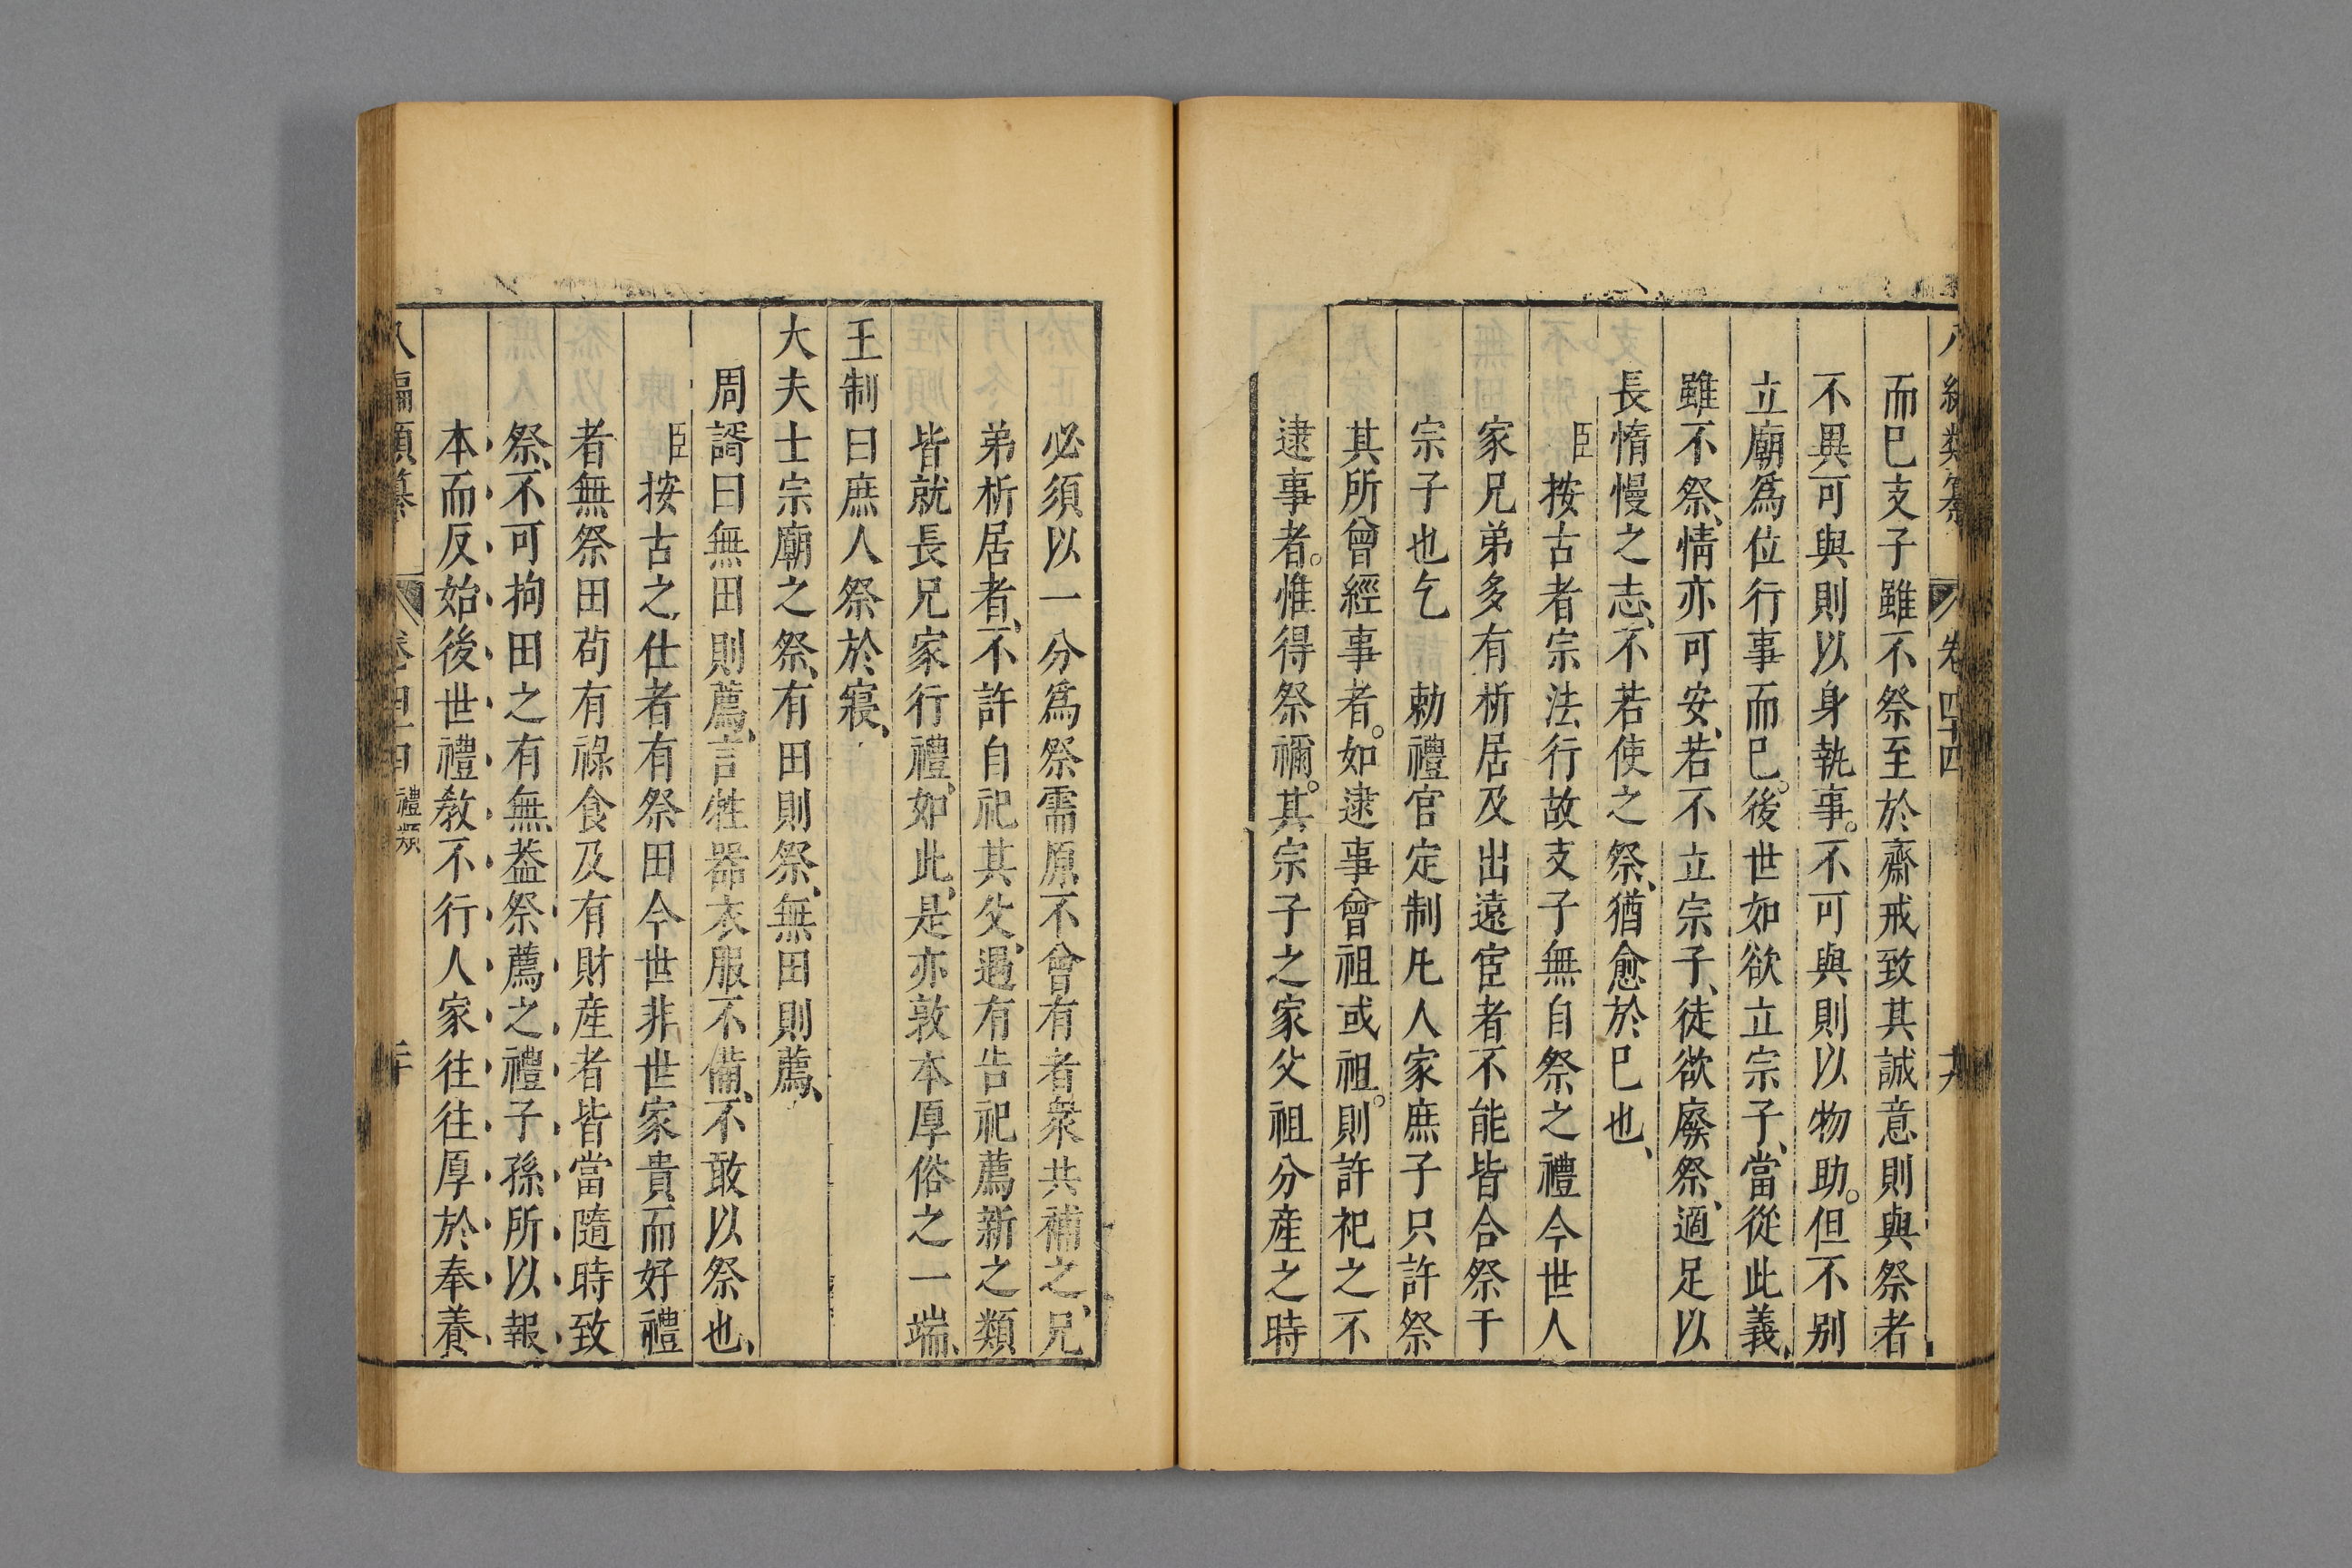 八編類纂 卷四十四 十九
而已支子雖不祭至於齋戒致其誠意則與祭者
不異可與則以身執事。不可與則以物助。但不别
立廟爲位行事而已。後世如欲立宗子、當從此義、
雖不祭、情亦可安、若不立宗子、徒欲廢祭、適足以
長惰慢之志、不若使之祭、猶愈於已也、
臣按古者宗法行故支子無自祭之禮今世人
家兄弟多有析居及出遠宦者不能皆合祭于
宗子也乞　勅禮官定制凡人家庶子只許祭
其所曾經事者。如逮事曾祖或祖。則許祀之不
逮事者。惟得祭禰。其宗子之家父祖分産之時
必須以一分爲祭需原不曾有者衆共補之、兄
弟析居者、不許自祀其父、遇有告祀薦新之類
皆就長兄家行禮、如此、是亦敦本厚俗之一端、
王制曰庶人祭於寢、
大夫士宗廟之祭、有田則祭、無田則薦、
周諝曰無田則薦、言牲器衣服不備、不敢以祭也、
臣按古之仕者有祭田今世非世家貴而好禮
者無祭田苟有祿食及有財産者皆當隨時致
祭、不可拘田之有無、葢祭薦之禮子孫所以報
本而反始後世禮敎不行人家往往厚於奉養
八編類纂 卷四十四 禮類 二十